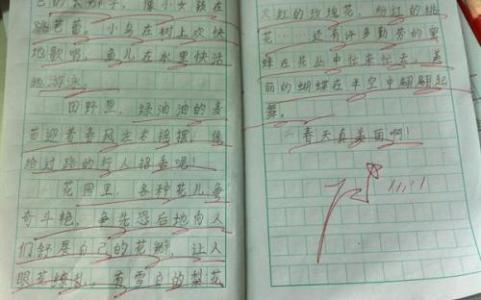 色的长裙子，像小女孩在
跳芭蕾，小鸟在树上欢快
地歌唱，鱼儿在水里快活
地游泳。
田野里，绿油油的麦
苗迎着春风左右摇摆，像
给过路的行人招手呢！
花园里，各种花儿争
奇斗艳，争先恐后地向人
们舒展自己的花瓣，让人
眼花缭乱，有雪白的梨花
火红的玫瑰花，粉红的桃
花……还有许多勤劳的蜜
蜂在花丛中忙来忙去，美
丽的蝴蝶在半空中翩翩起
舞。
春天真美丽啊！